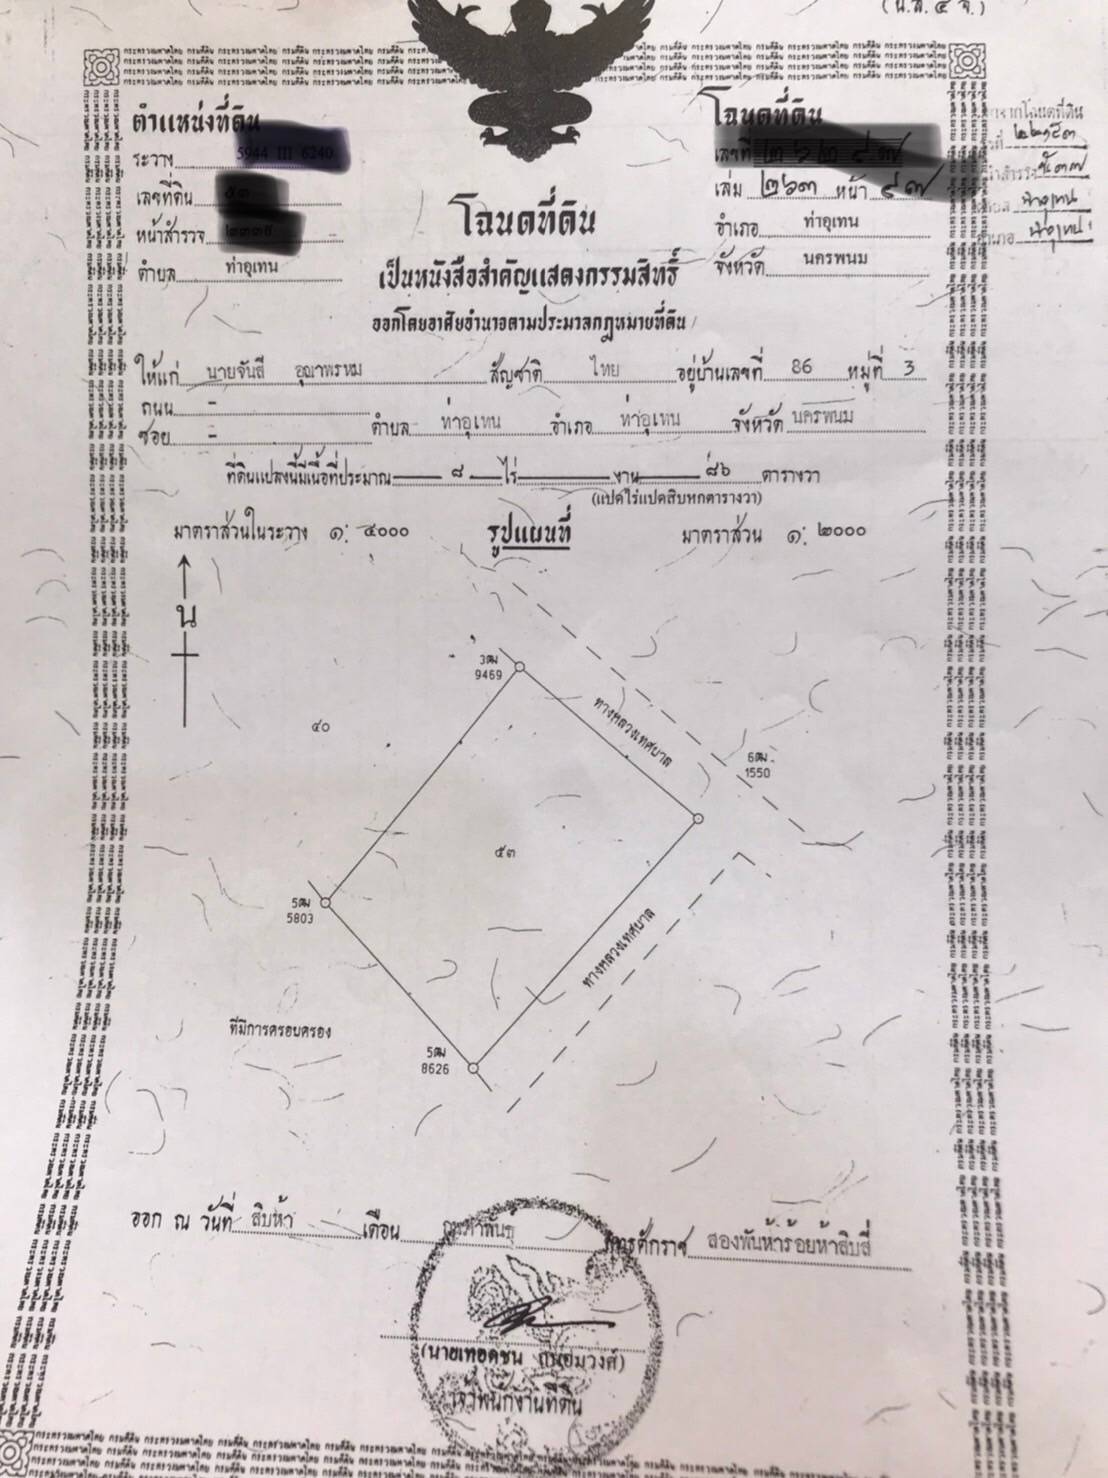 (น.ส.๔ จ.)
ตำแหน่งที่ดิน
ระวาง 5944 III 6240
เลขที่ดิน ๕๓
หน้าสำรวจ
ตำบล ท่าอุเทน
โฉนดที่ดิน
เลขที่
เล่ม ๒๖๓ หน้า ๙๗
อำเภอ ท่าอุเทน
จังหวัด นครพนม
โฉนดที่ดิน
ท่าอุเทน
ท่าอุเทน
โฉนดที่ดิน
เป็นหนังสือสำคัญแสดงกรรมสิทธิ์
ออกโดยอาศัยอำนาจตามประมวลกฎหมายที่ดิน
ให้แก่ นายจันสี อุณาพรหม สัญชาติ ไทย อยู่บ้านเลขที่ 86 หมู่ที่ 3
ถนน -
ซอย - ตำบล ท่าอุเทน อำเภอ ท่าอุเทน จังหวัด นครพนม
ที่ดินแปลงนี้มีเนื้อที่ประมาณ ๘ ไร่ งาน ๘๖ ตารางวา
(แปดไร่แปดสิบหกตารางวา)
มาตราส่วนในระวาง ๑: ๔๐๐๐ รูปแผนที่ มาตราส่วน ๑: ๒๐๐๐
น
3ฒ
9469
ทางหลวงเทศบาล
๔๐
6ฒ
1550
๕๓
5ฒ
5803
ทางหลวงเทศบาล
ที่มีการครอบครอง
5ฒ
8626
ออก ณ วันที่ สิบห้า เดือน กุมภาพันธ์ พุทธศักราช สองพันห้าร้อยห้าสิบสี่
(นายเทอดชน ถนอมวงศ์)
เจ้าพนักงานที่ดิน